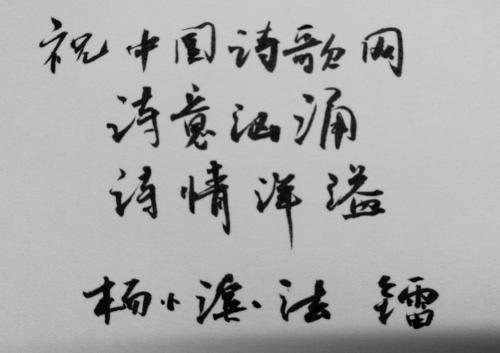 祝中国诗歌网
诗意汹涌
诗情洋溢
杨小滨·法镭